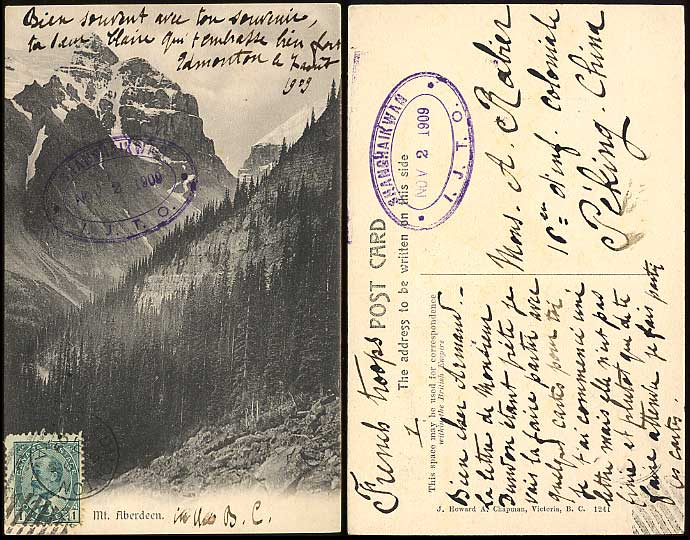 Bien souvent avec ton souvenir,
ta sœur Claire qui t'embrasse bien fort
Edmonton le 7 août
1909
SHANGHAIKWAN
2 1909
I. J. T. O.
1
Mt. Aberdeen. B. C.
SHANGHAIKWAN
NOV 2 1909
I. J. T. O.
POST CARD
The address to be written on this side
Mons. A. Rabier
16 d'inf. Coloniale
Péking. China
French troops
This space may be used for correspondence
within the British Empire
Bien cher Armand. -
La lettre de Monsieur
étant prête je
vais la faire partir avec
quelques cartes pour toi
Je t'ai commencé une
lettre mais elle n'est pas
finie et plutôt que de te
faire attendre je fais partir
les cartes.
J. Howard A. Chapman, Victoria, B. C. 1241